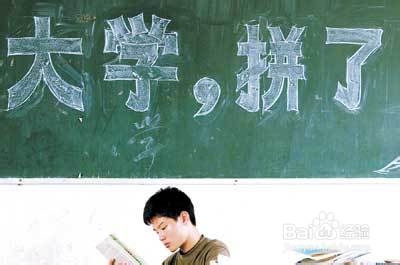 大学，拼了
学
Bai 百度 经验